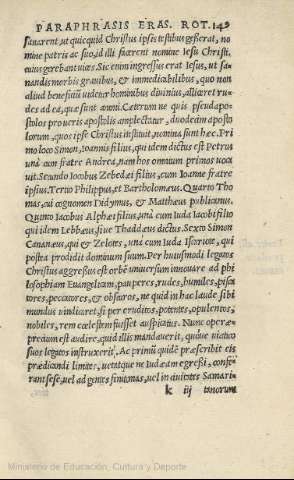 PARAPHRASIS ERAS. ROT. 149
sanarent, ut quicquid Christus ipsis testibus gesserat, no
mine patris ac suo, id illi facerent nomine Iesu Christi,
cuius gerebant vices. Sic enim ingressus erat Iesus, ut sa⸗
nandis morbis gravibus, & immedicabilibus, quo non
aliud beneficiū videtur hominibus divinius, alliceret ru⸗
des ad ea, quæ sunt animi. Cæterum ne quis pseudoapo⸗
stolos pro veris apostolis amplectatur, duodecim aposto
lorum, quos ipse Christus instituit, nomina sunt hæc. Pri
mo loco Simon, Ioannis filius, qui idem dictus est Petrus
unà cum fratre Andrea, nam hos omnium primos vocà
vit. Secundo Iacobus Zebedæi filius, cum Ioanne fratre
ipsius. Tertio Philippus, et Bartholomæus. Quarto Tho
mas, cui cognomen Didymus, & Matthæus publicanus.
Quinto Iacobus Alphæi filius, unà cum Iuda Iacobi filio
qui idem Lebbæus, sive Thaddæus dictus. Sexto Simon
Cananæus, qui & Zelotes, unà cum Iuda Isariote, qui
postea prodidit dominum suum. Per huiusmodi legatos
Christus aggressus est orbē universum innovare ad phi
losophiam Evangelicam, pauperes, rudes, humiles, pisca
tores, peccatores, & obscuros, ne quid in hac laude sibi
mundus vindicaret, si per eruditos, potentes, opulentos,
nobiles, rem cœlestem fuisset auspicatus. Nunc operæ⸗
precium est audire, quid illis mandaverit, quove viatico
suos legatos instruxerit. Ac primū quidē præscribit eis
prædicandi limites, vetatque ne Iudæam egressi, confer⸗
rant sese, vel ad gentes finitimas, vel in civitates Samari⸗
k iij tanorum
Ministerio de Educación, Cultura y Deporte